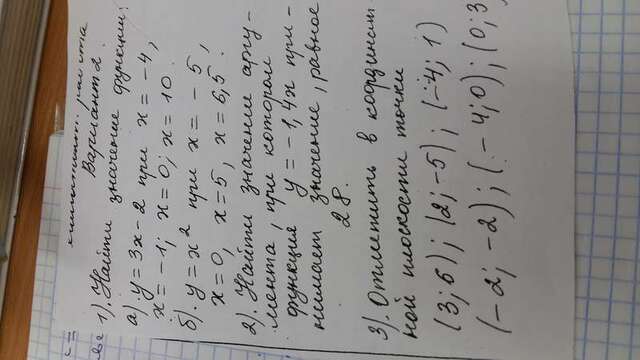 работа
Вариант 2.
1). Найти
значение функции:
а). y = 3x - 2 при x = -4,
x = -1; x = 0; x = 10.
б). y = x² при x = -5,
x = 0, x = 5, x = 6,5.
2). Найти значение аргу-
мента, при котором
функция y = -1,4x при-
нимает значение, равное
28.
3). Отметить в координат
ной плоскости точки
(3; 6); (2; -5); (-4; 1)
(-2; -2); (-4; 0); (0; 3